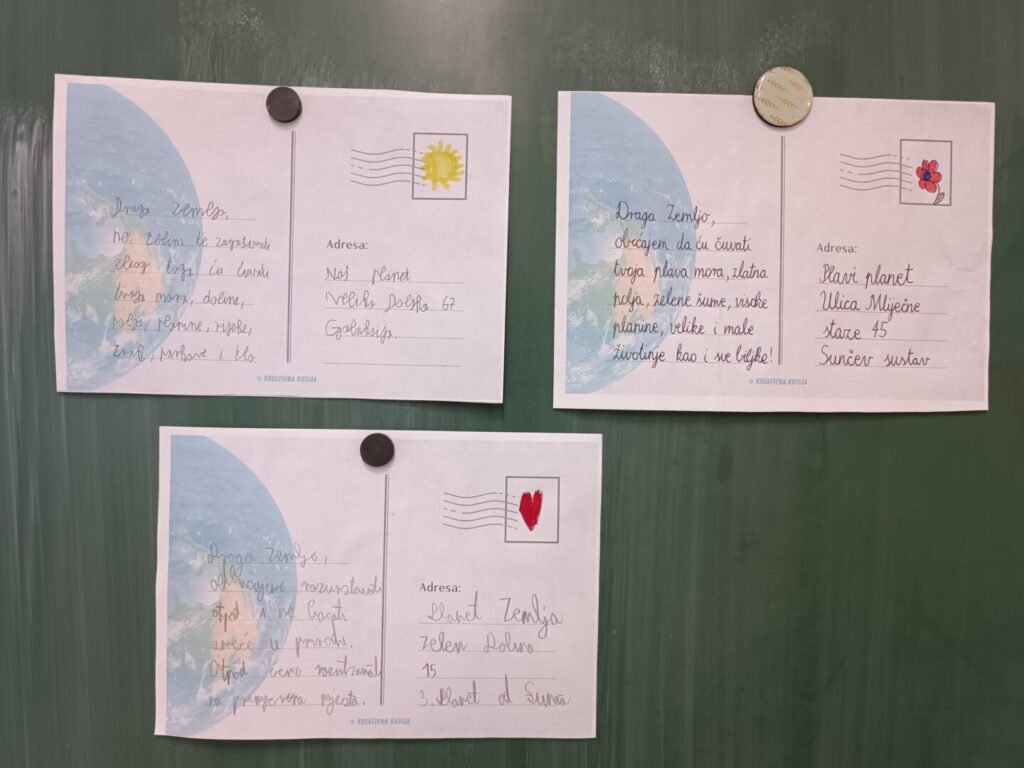 Draga Zemljo,
ne želim te zagađivati
zbog toga ću čuvati
tvoja mora, doline,
polja, planine, rijeke,
zrak, parkove i tlo.
Adresa:
Naš planet
Velika Dolska 67
Galaksija.
© KREATIVNA KUTIJA
Draga Zemljo,
obećajem da ću čuvati
tvoja plava mora, zlatna
polja, zelene šume, visoke
planine, velike i male
životinje kao i sve biljke!
Adresa:
Plavi planet
Ulica Mliječne
staze 45
Sunčev sustav
© KREATIVNA KUTIJA
Draga Zemljo,
razvrstavati
otpad i ne bacati
smeće u prirodi.
Otpad ćemo
na mjesta.
Adresa:
Planet Zemlja
Zelen Dolina
15
3. Planet od Sunca
© KREATIVNA KUTIJA